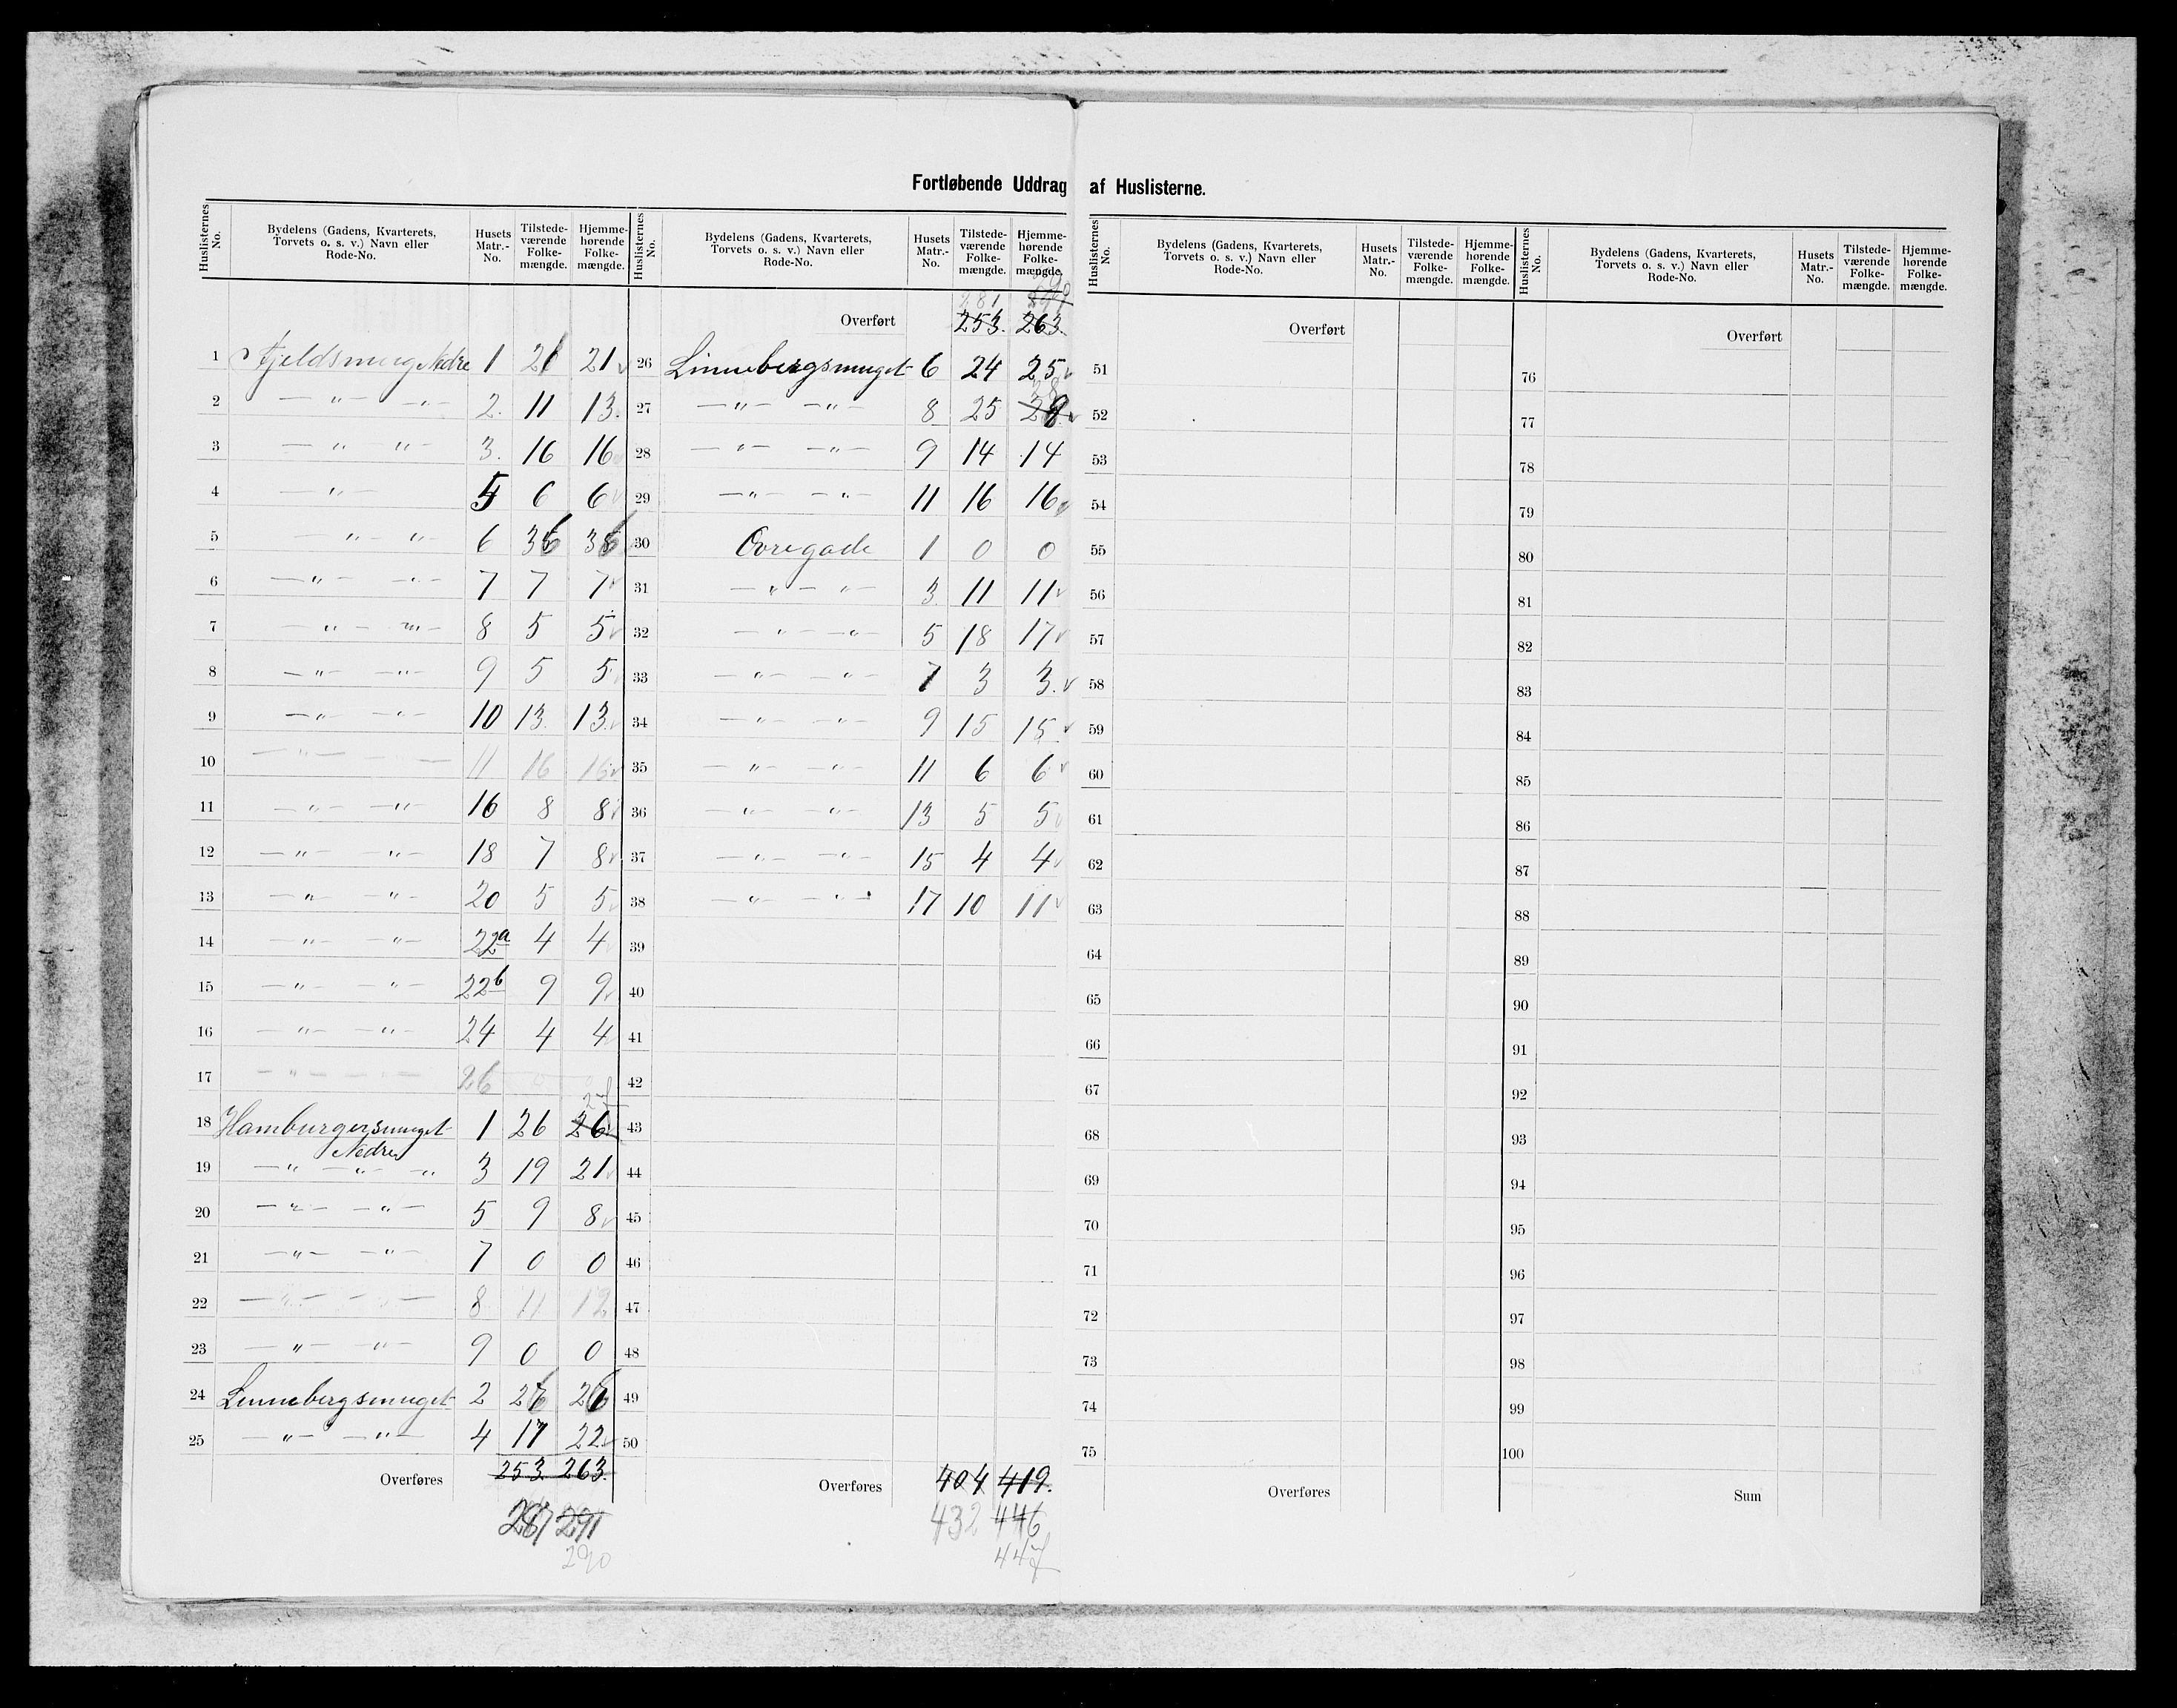 Fortløbende Uddrag af Huslisterne.
Huslisternes No. Bydelens (Gadens, Kvarterets, Torvets o. s. v.) Navn eller Rode-No. Husets Matr.-No. Tilstedeværende Folkemængde. Hjemmehørende Folkemængde.
1 Fjeldsmug Nedre 1 21 21
2 — " — — " — 2. 11 13.
3 — " " — 3. 16 16
4 — " — 5 6 6
5 — " — " — 6 36 36
6 — " — — " — 7 7 7
7 — " — " — 8 5 5
8 — " — — " — 9 5 5
9 — " — — " — 10 13. 13.
10 — " — — 11 16 16
11 — " — — " — 16 8 8
12 — " — — " — 18 7 8
13 — " — — " — 20 5 5
14 — " — — " — 22a 4 4
15 — " — — " — 22b 9 9
16 — " — — " — 24 4 4
17 — " — — " — 26
27
18 Hamburgersmuget 1 26 26
Nedre
19 — " — " — " 3 19 21
20 — " — — " — 5 9 8
21 — " — — " — 7 0 0
22 — " — — " — 8 11 12
23 — " — — " — 9 0 0
24 Linnebergsmuget 2 26 26
25 — " — — " — 4 17 22
Overføres 253. 263.
281 291
290
Huslisternes No. Bydelens (Gadens, Kvarterets, Torvets o. s. v.) Navn eller Rode-No. Husets Matr.-No. Tilstedeværende Folkemængde. Hjemmehørende Folkemængde.
281
Overført 253. 263.
26 Linnebergsmuget 6 24 25
27 — " — — " — 8 25 28
28 — " — — " — 9 14 14
29 — " — — " — 11 16 16
30 Øvregade 1 0 0
31 — " — " — 3 11 11
32 — " — " — 5 18 17
33 — " — — " — 7 3 3.
34 — " — — " — 9 15 15
35 — " — — " — 11 6 6
36 — " — — " — 13 5 5
37 — " — — " — 15 4 4
38 — " — — " — 17 10 11
39
40
41
42
43
44
45
46
47
48
49
50
Overføres 404 419.
432 446
447
Huslisternes No. Bydelens (Gadens, Kvarterets, Torvets o. s. v.) Navn eller Rode-No. Husets Matr.-No. Tilstedeværende Folkemængde. Hjemmehørende Folkemængde.
Overført
51
52
53
54
55
56
57
58
59
60
61
62
63
64
65
66
67
68
69
70
71
72
73
74
75
Overføres
Huslisternes No. Bydelens (Gadens, Kvarterets, Torvets o. s. v.) Navn eller Rode-No. Husets Matr.-No. Tilstedeværende Folkemængde. Hjemmehørende Folkemængde.
Overført
76
77
78
79
80
81
82
83
84
85
86
87
88
89
90
91
92
93
94
95
96
97
98
99
100
Sum